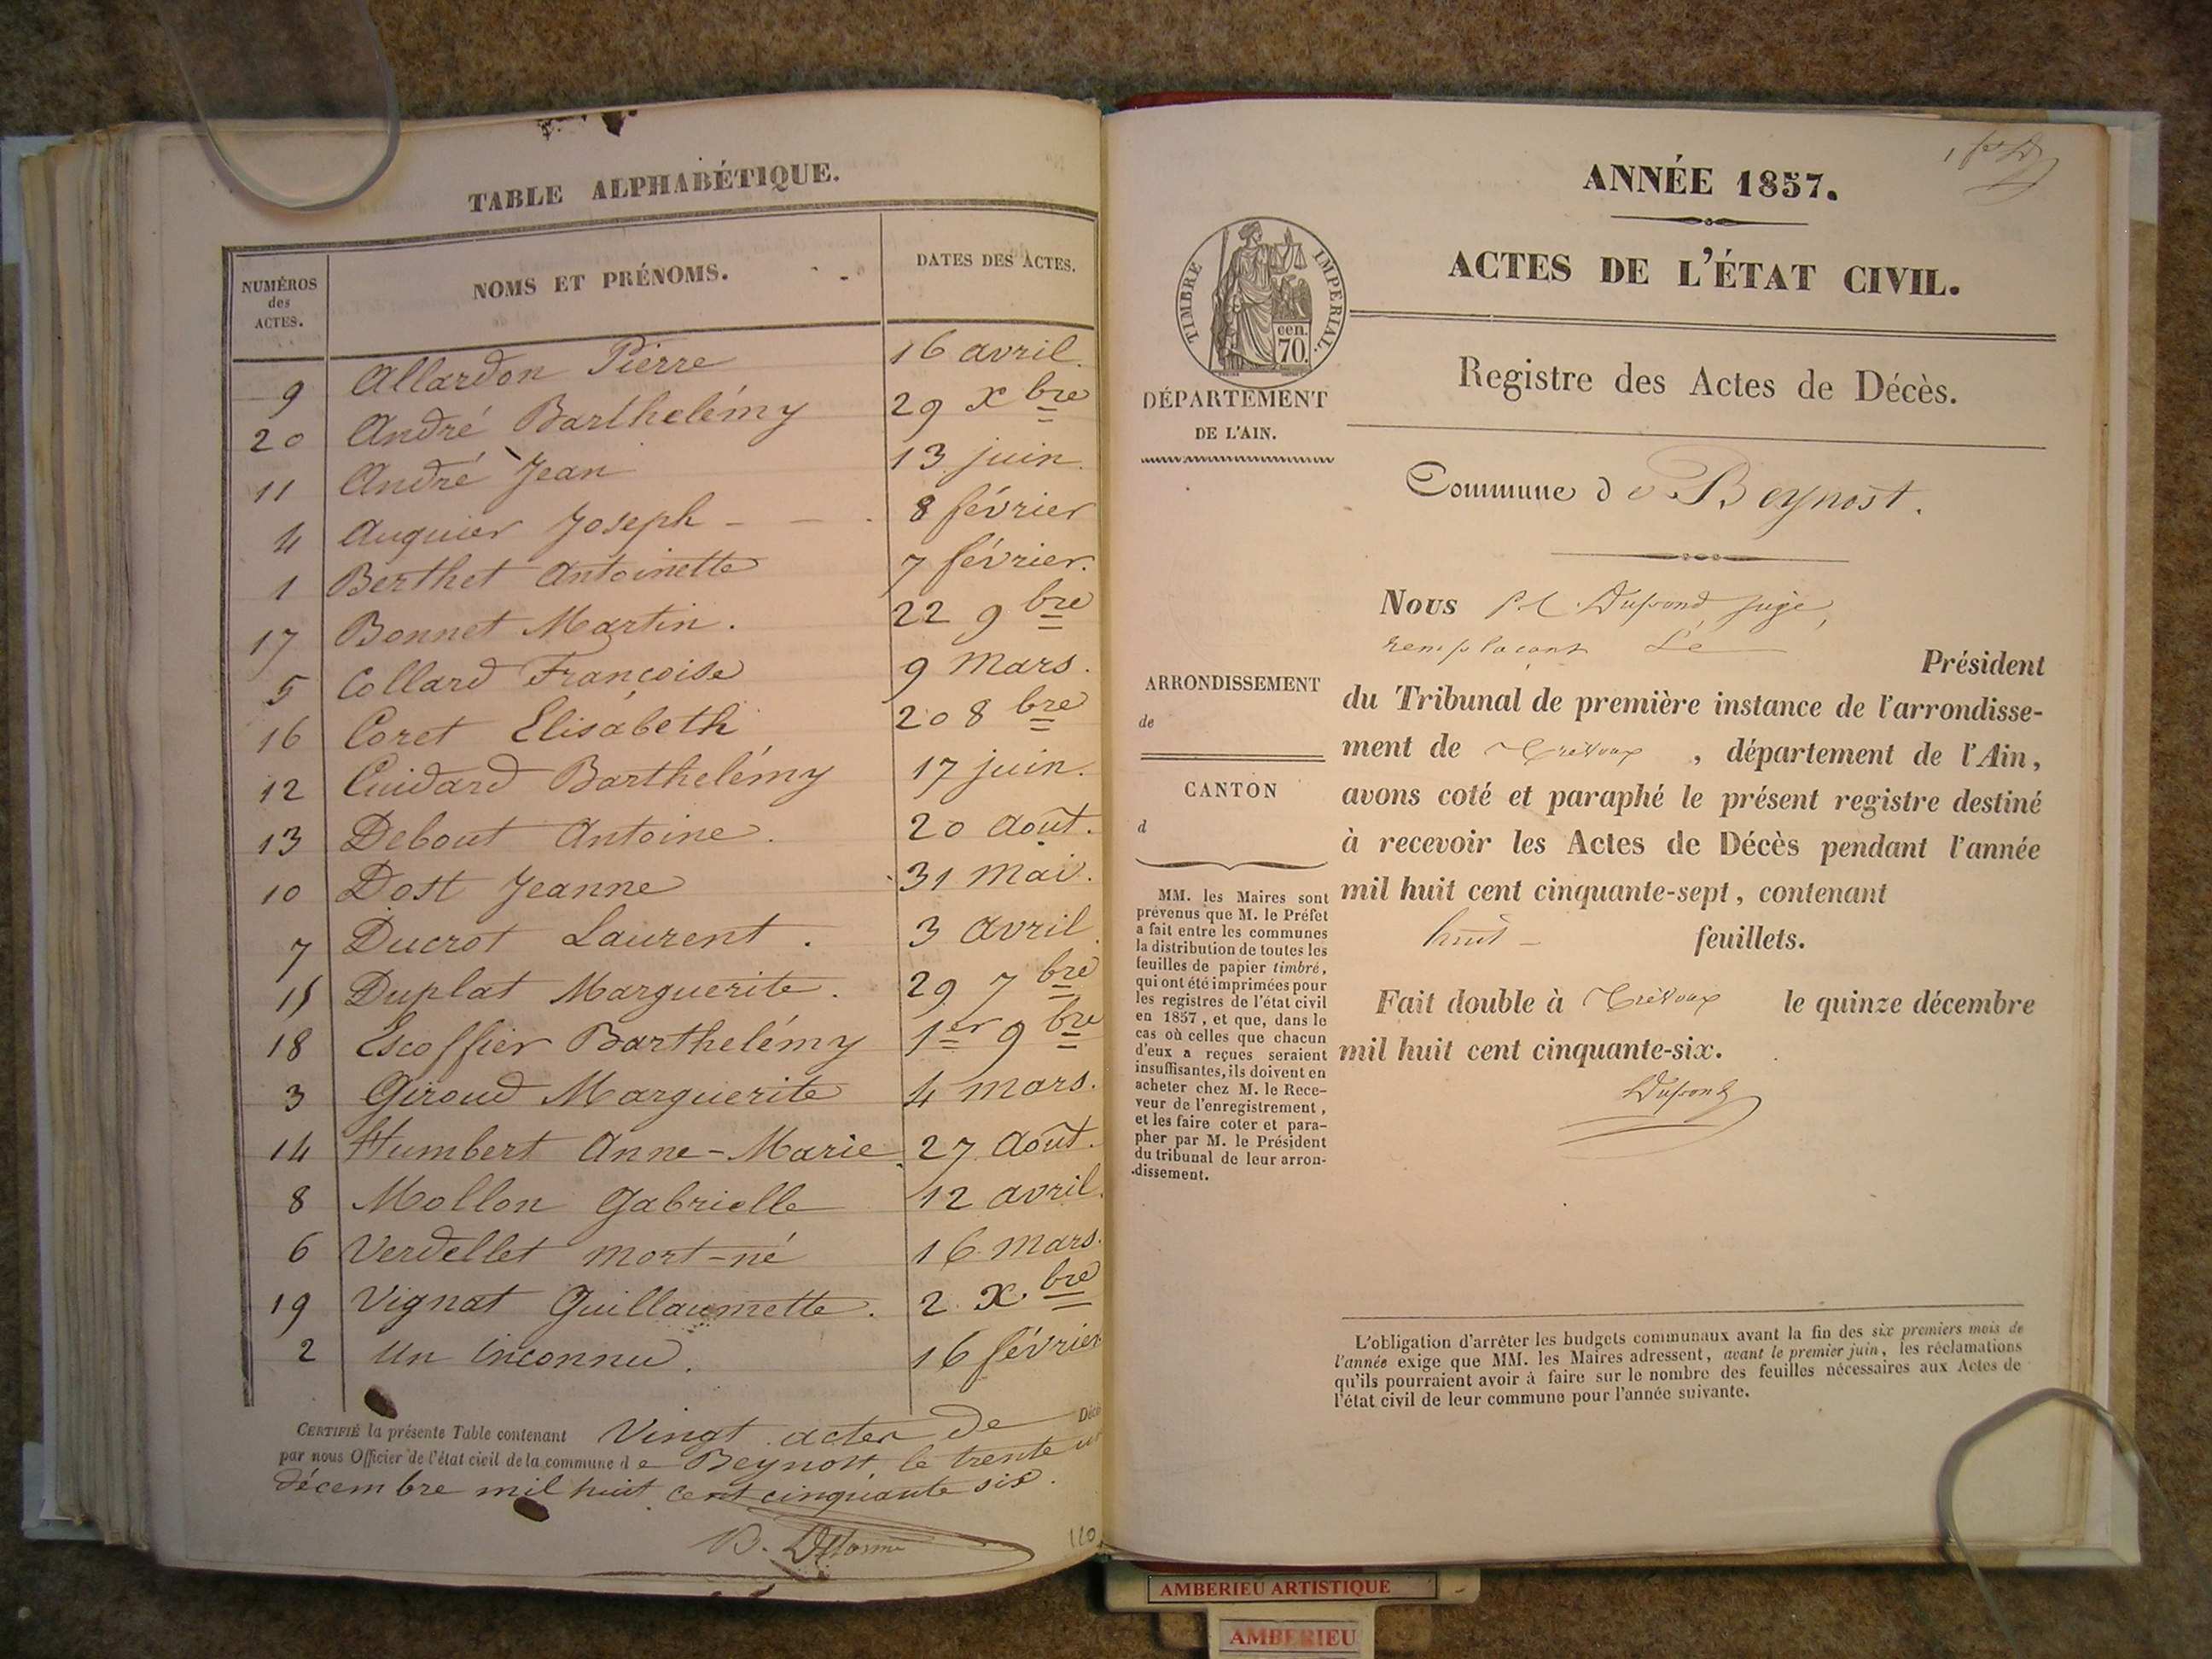 TABLE ALPHABÉTIQUE.
NUMÉROS des ACTES. NOMS ET PRÉNOMS. DATES DES ACTES.
9 Allardon Pierre 16 avril.
20 André Barthelémy 29 Xbre
11 André Jean 13 juin.
4 Auguier Joseph - - . 8 février
1 Berthet Antoinette 7 février.
17 Bonnet Martin. 22 9bre
5 Collard Françoise 9 Mars.
16 Coret Elisabeth 20 8bre
12 Cuidard Barthelémy 17 juin.
13 Debout Antoine. 20 Août.
10 Dost Jeanne 31 Mai.
7 Ducrot Laurent. 3 avril.
15 Duplat Marguerite. 29 7bre
18 Escoffier Barthelémy 1er 9bre
3 Giroud Marguerite 4 mars.
14 Humbert Anne-Marie 27 Août.
8 Mollon Gabrielle 12 avril.
6 Verdellet mort-né 16 mars.
19 Vignat Guillaumette. 2 Xbre
2 Un inconnu. 16 février
CERTIFIÉ la présente Table contenant Vingt actes de Décè
par nous Officier de l'état civil de la commune de Beynost, le trente un
décembre mil huit cent cinquante six.
B.
110
ANNÉE 1857.
ACTES DE L'ÉTAT CIVIL.
TIMBRE IMPERIAL.
cen.
70.
Registre des Actes de Décès.
DÉPARTEMENT
DE L'AIN.
Commune de Beynost.
Nous Dupond juge,
remplaçant Le
Président
du Tribunal de première instance de l'arrondisse-
ment de Trévoux, département de l'Ain,
avons coté et paraphé le présent registre destiné
à recevoir les Actes de Décès pendant l'année
mil huit cent cinquante-sept, contenant
huit - feuillets.
Fait double à Trévoux le quinze décembre
mil huit cent cinquante-six.
Dupond
ARRONDISSEMENT
de
CANTON
d
MM. les Maires sont
prévenus que M. le Préfet
a fait entre les communes
la distribution de toutes les
feuilles de papier timbré,
qui ont été imprimées pour
les registres de l'état civil
en 1857, et que, dans le
cas où celles que chacun
d'eux a reçues seraient
insuffisantes, ils doivent en
acheter chez M. le Rece-
veur de l'enregistrement,
et les faire coter et para-
pher par M. le Président
du tribunal de leur arron-
dissement.
L'obligation d'arrêter les budgets communaux avant la fin des six premiers mois de
l'année exige que MM. les Maires adressent, avant le premier juin, les réclamations
qu'ils pourraient avoir à faire sur le nombre des feuilles nécessaires aux Actes de
l'état civil de leur commune pour l'année suivante.
AMBERIEU ARTISTIQUE
AMBERIEU